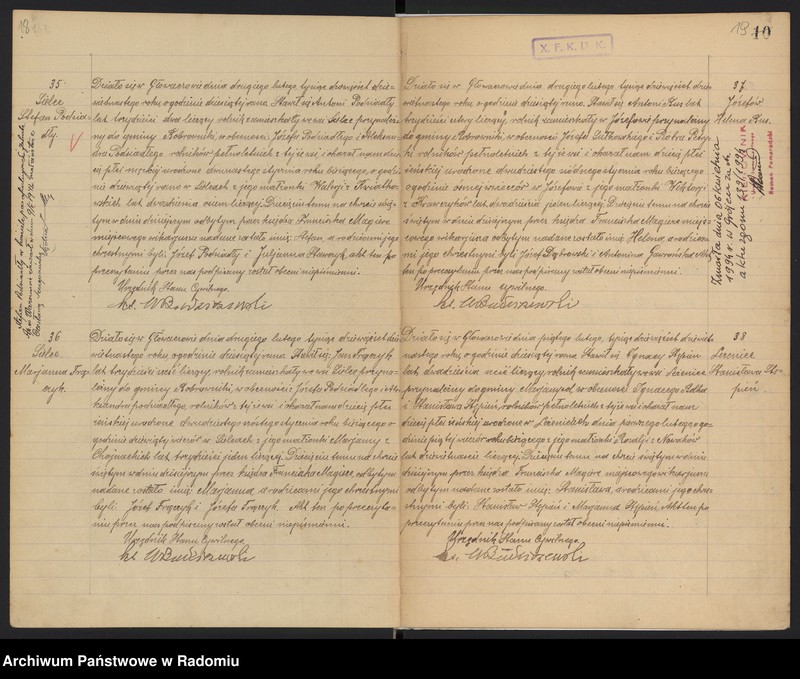 18
35
Sielec
Stefan Podsia-
dły
Działo się w Głowaczowie dnia drugiego lutego tysiąc dziewięćset dzie-
więtnastego roku o godzinie dziesiątej rano. Stawił się Antoni Podsiadły
lat trzydzieści dwa liczący, rolnik zamieszkały we wsi Sielec przynależ
ny do gminy Kobrowniki, w obecności Józefa Podsiadłego i Aleksan-
dra Podsiadłego rolników pełnoletnich z tejże wsi i okazał nam dziec
ię płci męskiej urodzone dwunastego stycznia roku bieżącego, o godzi-
nie dziewiątej rano w Sielcach z jego małżonki Walerji z Kwiatkow-
skich lat dwadzieścia osiem liczącej. Dziecięciu temu na chrzcie świę-
tym w dniu dzisiejszym odbytym przez księdza Franciszka Magórę
miejscowego wikarjusza nadane zostało imię: Stefan, a rodzicami jego
chrzestnymi byli: Józef Podsiadły i Juljanna Akt ten po
przeczytaniu przez nas podpisany został obecni niepiśmienni.
Urzędnik Stanu Cywilnego.
ks.
36
Sielec
Marjanna Frą-
czyk.
Działo się w Głowaczowie dnia drugiego lutego tysiąc dziewięćset dzie
więtnastego roku, o godzinie dziesiątej rano. Stawił się: Jan Frączyk
lat trzydzieści sześć liczący, rolnik zamieszkały we wsi Sielec przyna-
leżny do gminy Kobrowniki, w obecności Józefa Podsiadłego i Alek-
sandra Podsiadłego, rolników z tejże wsi i okazał nam dziecię płci
żeńskiej urodzone dwudziestego szóstego stycznia roku bieżącego o
godzinie dziewiątej wieczór w Sielcach z jego małżonki Marjanny z
Chojnackich lat trzydzieści jeden liczącej. Dziecięciu temu na chrzcie
świętym w dniu dzisiejszym przez księdza Franciszka Magórę, odbytym
nadane zostało imię: Marjanna, a rodzicami jego chrzestnymi
byli: Józef Frączyk i Józefa Frączyk. Akt ten po przeczyta-
niu przez nas podpisany został obecni niepiśmienni.
Urzędnik Stanu Cywilnego.
ks.
X. F. K. D. K.
19
10
37
Józefów
Helena Rus.
Działo się w Głowaczowie dnia drugiego lutego, tysiąc dziewięćset dzie
więtnastego roku o godzinie dziesiątej rano. Stawił się Antoni Rus lat
trzydzieści cztery liczący, rolnik zamieszkały w Józefowie przynależny
do gminy Kobrowniki, w obecności Józefa Sutkowskiego i Piotra
rolników pełnoletnich z tejże wsi i okazał nam dziecię płci
żeńskiej urodzone dwudziestego siódmego stycznia roku bieżącego
o godzinie ósmej wieczór w Józefowie z jego małżonki Walerji
z Krawczyków lat dwadzieścia jeden liczącej. Dziecięciu temu na chrzcie
świętym w dniu dzisiejszym przez księdza Franciszka Magórę miejsco-
wego wikarjusza odbytym nadane zostało imię Helena a rodzica-
mi jego chrzestnymi byli Józef Dąbrowski i Antonina Akt
ten po przeczytaniu przez nas podpisany został obecni niepiśmienni.
Urzędnik Stanu Cywilnego.
ks.
Zmarła dnia
1994 r. w
akt zgonu
38
Lezenice
Stanisława Stę-
pień.
Działo się w Głowaczowie dnia piątego lutego, tysiąc dziewięćset dziewięt-
nastego roku, o godzinie dziesiątej rano. Stawił się Ignacy Stępień
lat dwadzieścia sześć liczący, rolnik zamieszkały we wsi Lezenice
przynależny do gminy Marjampol, w obecności Ignacego
i Stanisława Stępień, rolników pełnoletnich z tejże wsi i okazał nam
dziecię płci żeńskiej urodzone w Lezenicach dnia pierwszego lutego o go-
dzinie piątej wieczór roku bieżącego z jego małżonki Rozalji z Nowaków
lat dziewiętnaście liczącej. Dziecięciu temu na chrzcie świętym w dniu
dzisiejszym przez księdza Franciszka Magórę miejscowego wikarjusza
odbytym nadane zostało imię: Stanisława, a rodzicami jego chrze-
stnymi byli: Stanisław Stępień i Marjanna Stępień. Akt ten po
przeczytaniu przez nas podpisany został obecni niepiśmienni.
Urzędnik Stanu Cywilnego.
ks.
Archiwum Państwowe w Radomiu